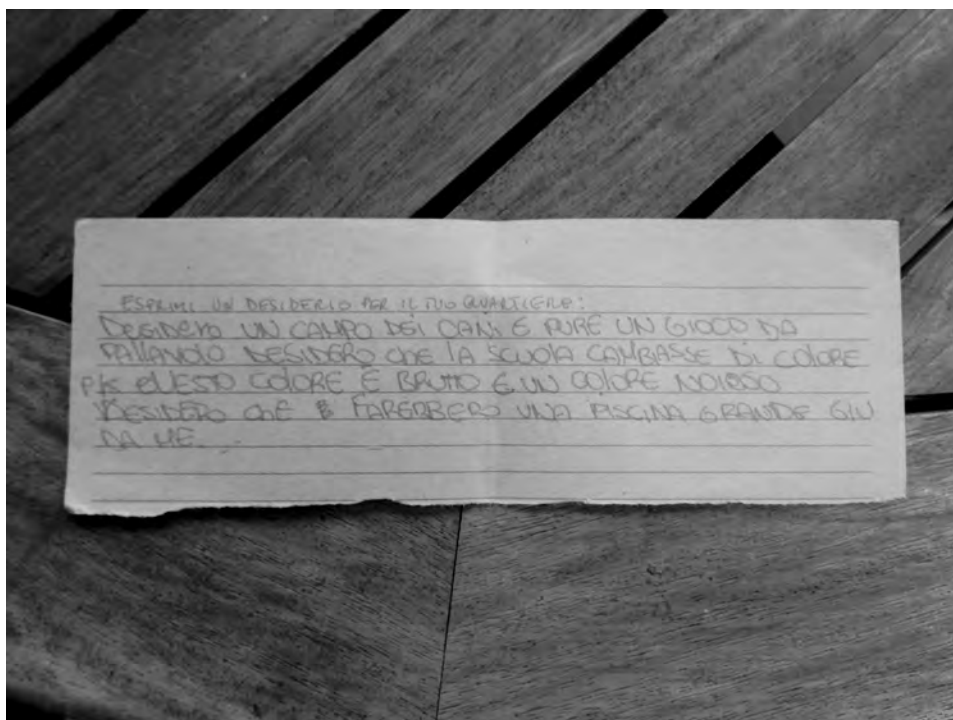 ESPRIMI UN DESIDERIO PER IL TUO QUARTIERE:
DESIDERO UN CAMPO DEI CANI E PURE UN GIOCO DA
PALLAVOLO DESIDERO CHE LA SCUOLA CAMBIASSE DI COLORE
PK QUESTO COLORE È BRUTTO E UN COLORE NOIOSO
DESIDERO CHE FAREBBERO UNA PISCINA GRANDE GIU
DA ME